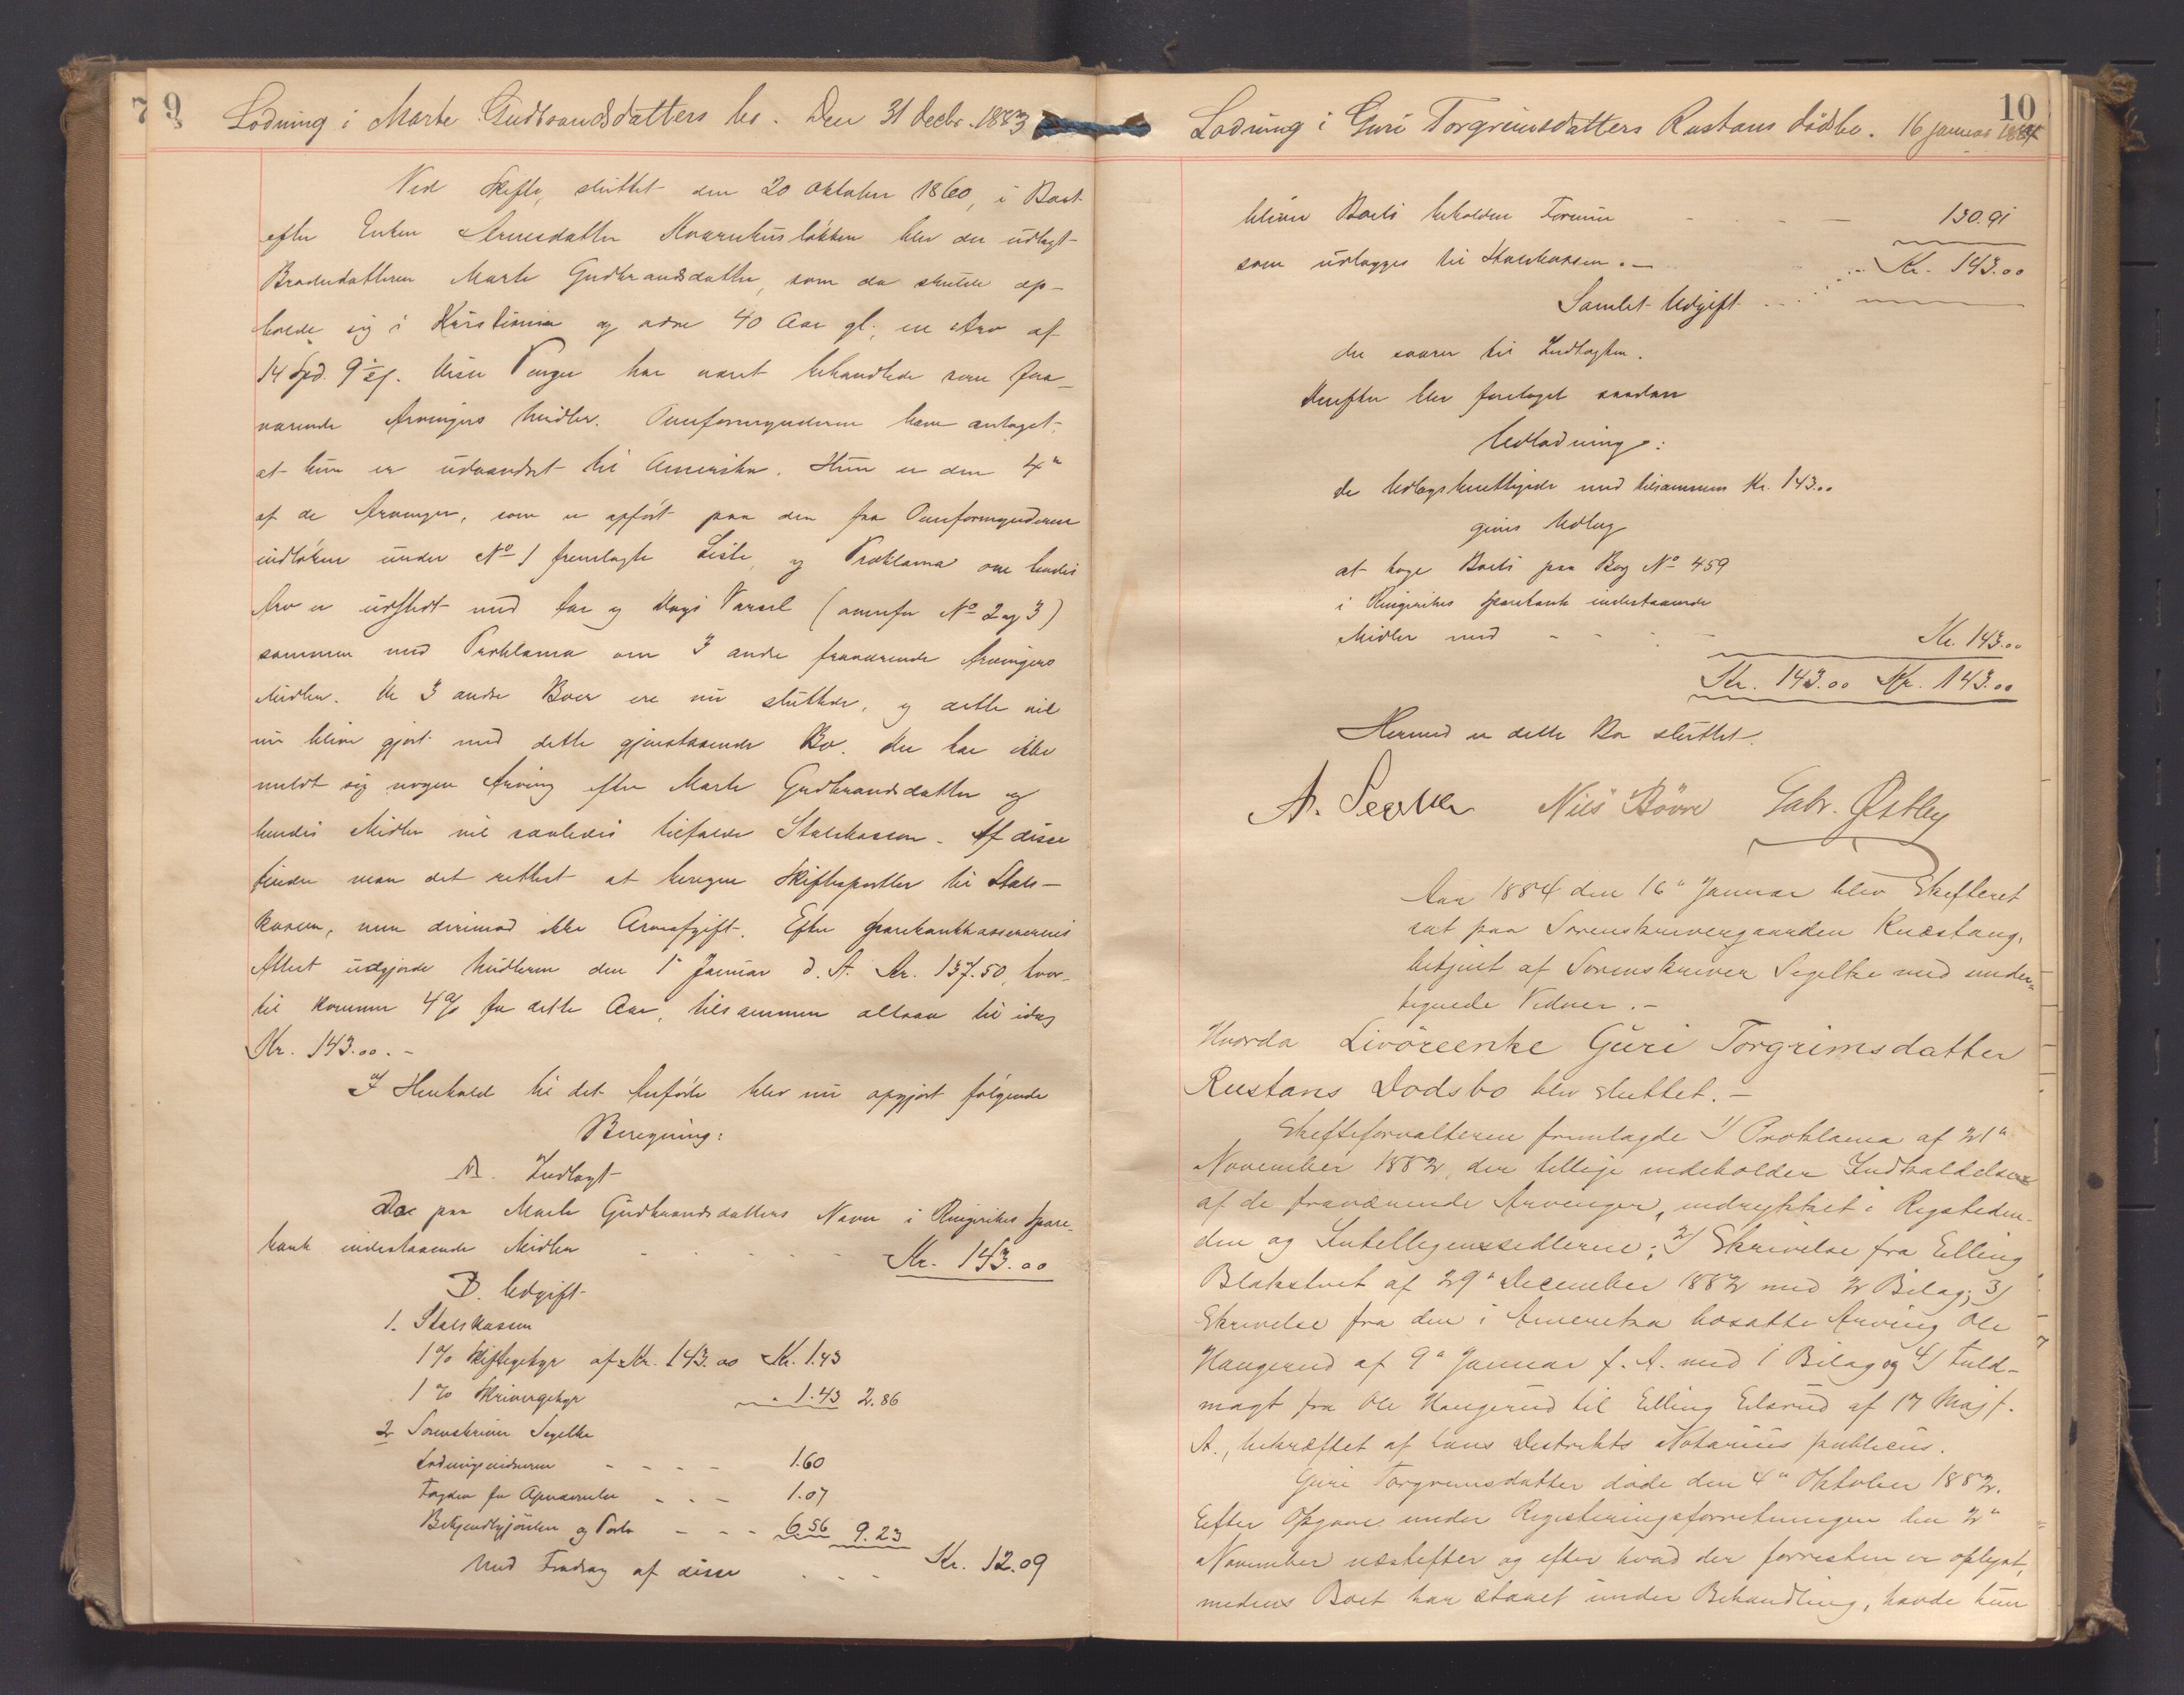 7 9
Lodning i Marte Gudbrandsdatters bo. Den 31 Decbr. 1883
Ved Skifte, sluttet den 20 Oktober 1860, i Boet
efter Enken Arnesdatter Kværnhusløkken blev der udlagt
Broderdatteren Marte Gudbrandsdatter, som da skulde op-
holde sig i Kristiania og være 40 Aar gl., en Arv af
14 Spd. 9 ß. Disse Penge har været behandlede som fra-
værende Arvingers Midler. Overformynderne have antaget,
at hun er udvandret til Amerika. Hun er den 4"
af de Arvinger, som er opført paa den fra Overformynderne
indløbne under No 1 fremlagte Liste, og Proklama om hendes
Arv er udstedt med Aar og Dags Varsel (ovenfor No 2 og 3)
sammen med Proklama om 3 andre fraværende Arvingers
Midler. De 3 andre Boer ere nu sluttede, og dette vil
nu blive gjort med dette gjenstaaende Bo. Der har ikke
meldt sig nogen Arving efter Marte Gudbrandsdatter og
hendes Midler vil saaledes tilfalde Statskassen. Af disse
finder man det rettest at beregne Skiftesportler til Stats-
kassen, men derimod ikke Arveafgift. Efter Sparebankkassererens
Attest udgjorde Midlerne den 1" Januar d. A. Kr. 137.50, hvor-
til kommer 4% for dette Aar, tilsammen altsaa til idag
Kr. 143.00.-
I Henhold til det Anførte blev nu opgjort følgende
Beregning:
A. Indtægt
De paa Marte Gudbrandsdatters Navn i Ringerikes Spare-
bank indestaaende Midler - - - - - Kr. 143.00
B. Udgift
1. Statskassen
1% Skiftegebyr af Kr. 143.00 Kr. 1.43
1% Skrivergebyr " 1.43 2.86
2 Sorenskriver Segelke
Lodningsvidnerne - - - - 1.60
Fogden for Aponcerelse - - - 1.07
Bekjendtgjørelser og Porto - - - 6.56 9.23
Med Fradrag af disse - - - Kr. 12.09
10
Lodning i Guri Torgrimsdatters Rustans dødsbo. 16 januar 1884
bliver Boets beholdne Formue - - - 130.91
som udlægges til Statskassen.-
Samlet Udgift - - - Kr. 143.00
der svarer til Indtægten.
Derefter blev foretaget saadan
Udlodning:
De Udlægsberettigede med tilsammen Kr. 143.00
gives Udlæg
at tage Boets paa Bog No 459
i Ringerikes Sparebank indestaaende
Midler med - - - - Kr. 143.00
Kr. 143.00 Kr. 143.00
Hermed er dette Bo sluttet.
A. Segelke Nils Bövre Gabr. Østby
Aar 1884 den 16" Januar blev Skifteret
sat paa Sorenskrivergaarden Knæstang,
betjent af Sorenskriver Segelke med under-
tegnede Vidner.-
Hvorda Livöreenke Guri Torgrimsdatter
Rustans Dødsbo blev sluttet.-
Skifteforvalteren fremlagde 1) Proklama af 21"
November 1882, der tillige indeholder Indkaldelse
af de fraværende Arvinger, indrykket i Rigstiden-
den og Intelligenssedlerne; 2) Skrivelse fra Elling
Blakstvet af 29" December 1882 med 2 Bilag; 3)
Skrivelse fra den i Amerika bosatte Arving Ole
Haugerud af 9" Januar f. A. med 1 Bilag og 4) Fuld-
magt fra Ole Haugerud til Elling Eilsrud af 17 Maj f.
A., bekræftet af hans Distrikts Notarius publicus.
Guri Torgrimsdatter døde den 4" Oktober 1882.
Efter Opgave under Registeringsforretningen den 2"
November næstefter og efter hvad der forresten er oplyst,
medens Boet har staaet under Behandling, havde hun